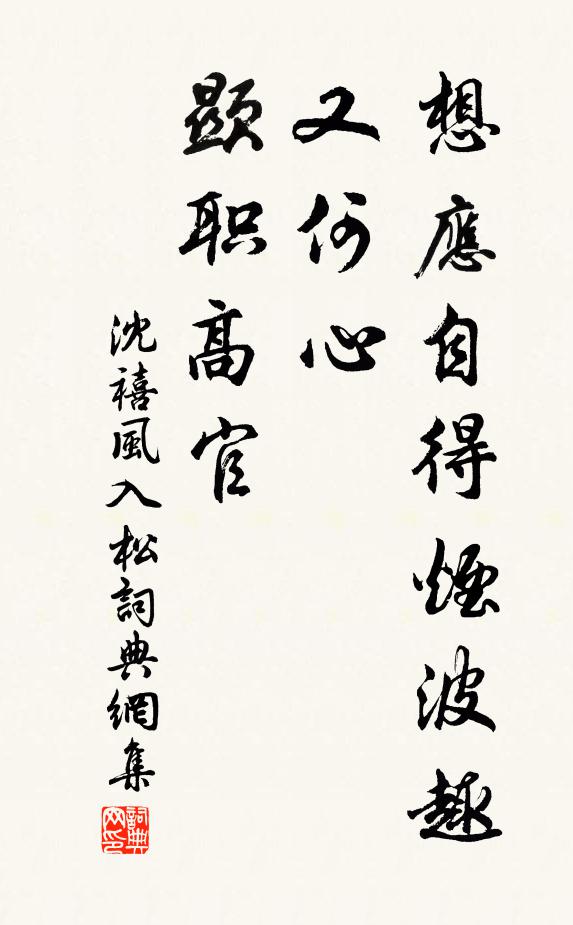 想應自得煙波趣
又何心
顯职高官
沈禧風入松詞典網集
詞典
网印